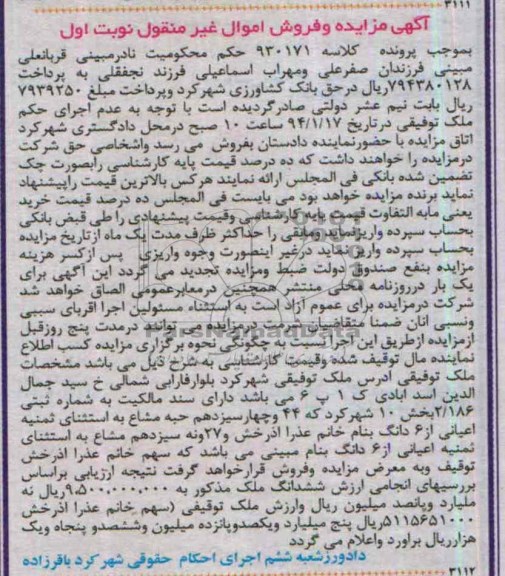 ۳۱۱۱
آگهی مزایده وفروش اموال غیر منقول نوبت اول
بموجب پرونده کلاسه ۹۳۰۱۷۱ حکم محکومیت نادرمبینی قربانعلی
مبینی فرزندان صفرعلی ومهراب اسماعیلی فرزند نجفقلی به پرداخت
۷۹۴۳۸۰۱۲۸ریال درحق بانک کشاورزی شهرکرد وپرداخت مبلغ ۷۹۳۹۲۵۰
ریال بابت نیم عشر دولتی صادرگردیده است با توجه به عدم اجرای حکم
ملک توقیفی درتاریخ ۹۴/۱/۱۷ ساعت ۱۰ صبح درمحل دادگستری شهرکرد
اتاق مزایده با حضورنماینده دادستان بفروش می رسد واشخاصی حق شرکت
درمزایده را خواهند داشت که ده درصد قیمت پایه کارشناسی رابصورت چک
تضمین شده بانکی فی المجلس ارائه نمایند هرکس بالاترین قیمت راپیشنهاد
نماید برنده مزایده خواهد بود می بایست فی المجلس ده درصد قیمت خرید
یعنی مابه التفاوت قیمت پایه کارشناسی وقیمت پیشنهادی را طی قبض بانکی
بحساب سپرده واریزنماید ومابقی را حداکثر ظرف مدت یک ماه ازتاریخ مزایده
بحساب سپرده واریزنماید درغیر اینصورت وجوه واریزی پس ازکسر هزینه
مزایده بنفع صندوق دولت ضبط ومزایده تجدید می گردد این آگهی برای
یک بار درروزنامه محلی منتشر همچنین درمعابرعمومی الصاق خواهد شد
شرکت درمزایده برای عموم آزاد است به استثناء مسئولین اجرا اقربای سببی
ونسبی انان ضمنا متقاضیان شرکت درمزایده می توانند درمدت پنج روزقبل
ازمزایده ازطریق این اجرا نسبت به چگونگی نحوه برگزاری مزایده کسب اطلاع
نماینده مال توقیف شده وقیمت کارشناسی به شرح ذیل می باشد مشخصات
ملک توقیفی ادرس ملک توقیفی شهرکرد بلوارفارابی شمالی خ سید جمال
الدین اسد ابادی ک ۱ پ ۶ می باشد دارای سند مالکیت به شماره ثبتی
۲/۱۸۶بخش ۱۰ شهرکرد که ۴۴ وچهارسیزدهم حبه مشاع به استثنای ثمنیه
اعیانی از۶ دانگ بنام خانم عذرا اذرخش و۲۷ونه سیزدهم مشاع به استثنای
ثمنیه اعیانی از۶ دانگ بنام مبینی می باشد که سهم خانم عذرا اذرخش
توقیف وبه معرض مزایده وفروش قرارخواهد گرفت نتیجه ارزیابی براساس
بررسیهای انجامی ارزش ششدانگ ملک مذکور به ۹،۵۰۰،۰۰۰،۰۰۰ریال نه
ملیارد وپانصد میلیون ریال وارزش ملک توقیفی (سهم خانم عذرا اذرخش
۵۱۱۵۶۵۱۰۰۰ریال پنج میلیارد ویکصدوپانزده میلیون وششصدو پنجاه ویک
هزارریال براورد واعلام می گردد
دادورزشعبه ششم اجرای احکام حقوقی شهرکرد باقرزاده
۳۱۱۲